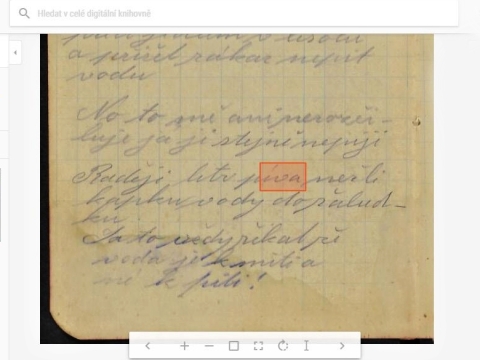 Hledat v celé digitální knihovně
a přišel zákaz nepít
vodu
No to mě ani nerozči-
luje já ji stejně nepiji
Raději litr piva nežli
kapku vody do žalud-
ku.
Ja to vždy říkal že
voda je k mití a
né k pití!